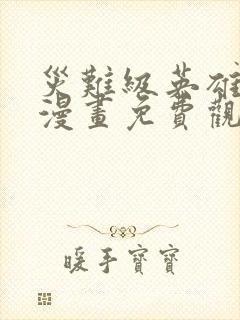 災難級英雄
漫畫免費觀
暖手寶寶